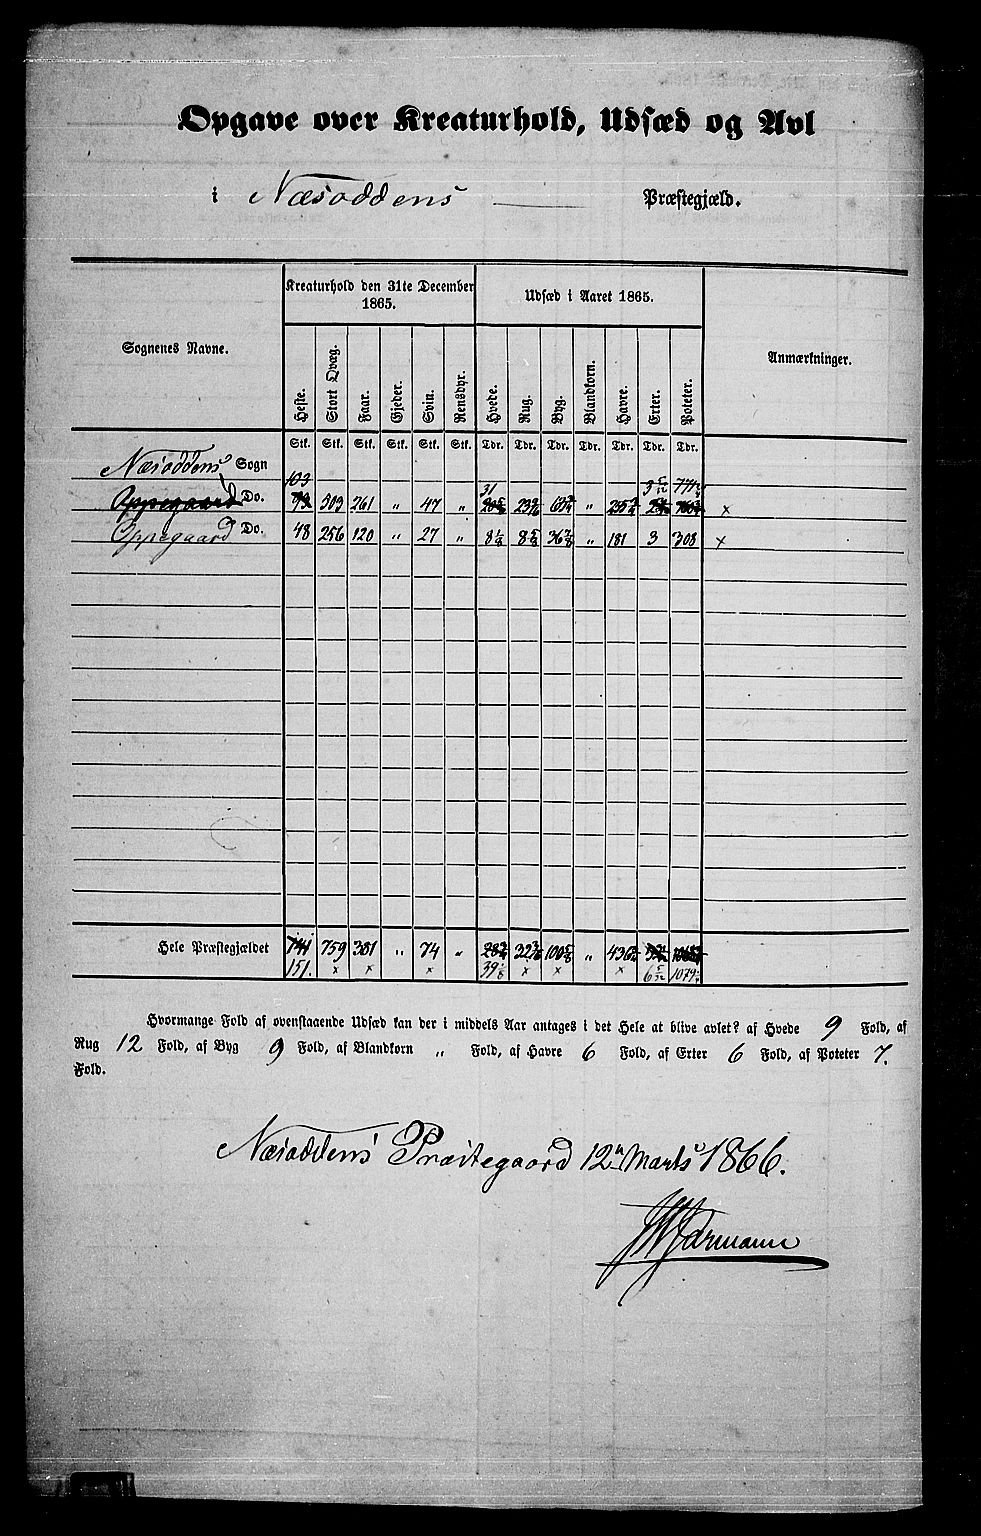 Opgave over Kreaturhold, Udsæd og Avl
i Næsoddens Præstegjæld.
Sognenes Navne.
Kreaturhold den 31te December 1865.
Udsæd i Aaret 1865.
Anmærkninger.
Heste. Stort Qvæg. Faar. Gjeder. Sviin. Rensdyr. Hvede. Rug. Byg. Blandkorn. Havre. Erter. Poteter.
Stk. Stk. Stk. Stk. Stk. Stk. Tdr. Tdr. Tdr. Tdr. Tdr. Tdr. Tdr.
Næsoddens Sogn
103 31
Oppegaard Do. 93 503 261 " 47 " " x
Oppegaard Do. 48 256 120 " 27 " " 181 3 308 x
Hele Præstegjældet 141 759 381 " 74 " "
151. x x x x x x
Hvormange Fold af ovenstaaende Udsæd kan der i middels Aar antages i det Hele at blive avlet? af Hvede 9 Fold, af
Rug 12 Fold, af Byg 9 Fold, af Blandkorn " Fold, af Havre 6 Fold, af Erter 6 Fold, af Poteter 7.
Fold.
Næsoddens Præstegaard 12 Marts 1866.